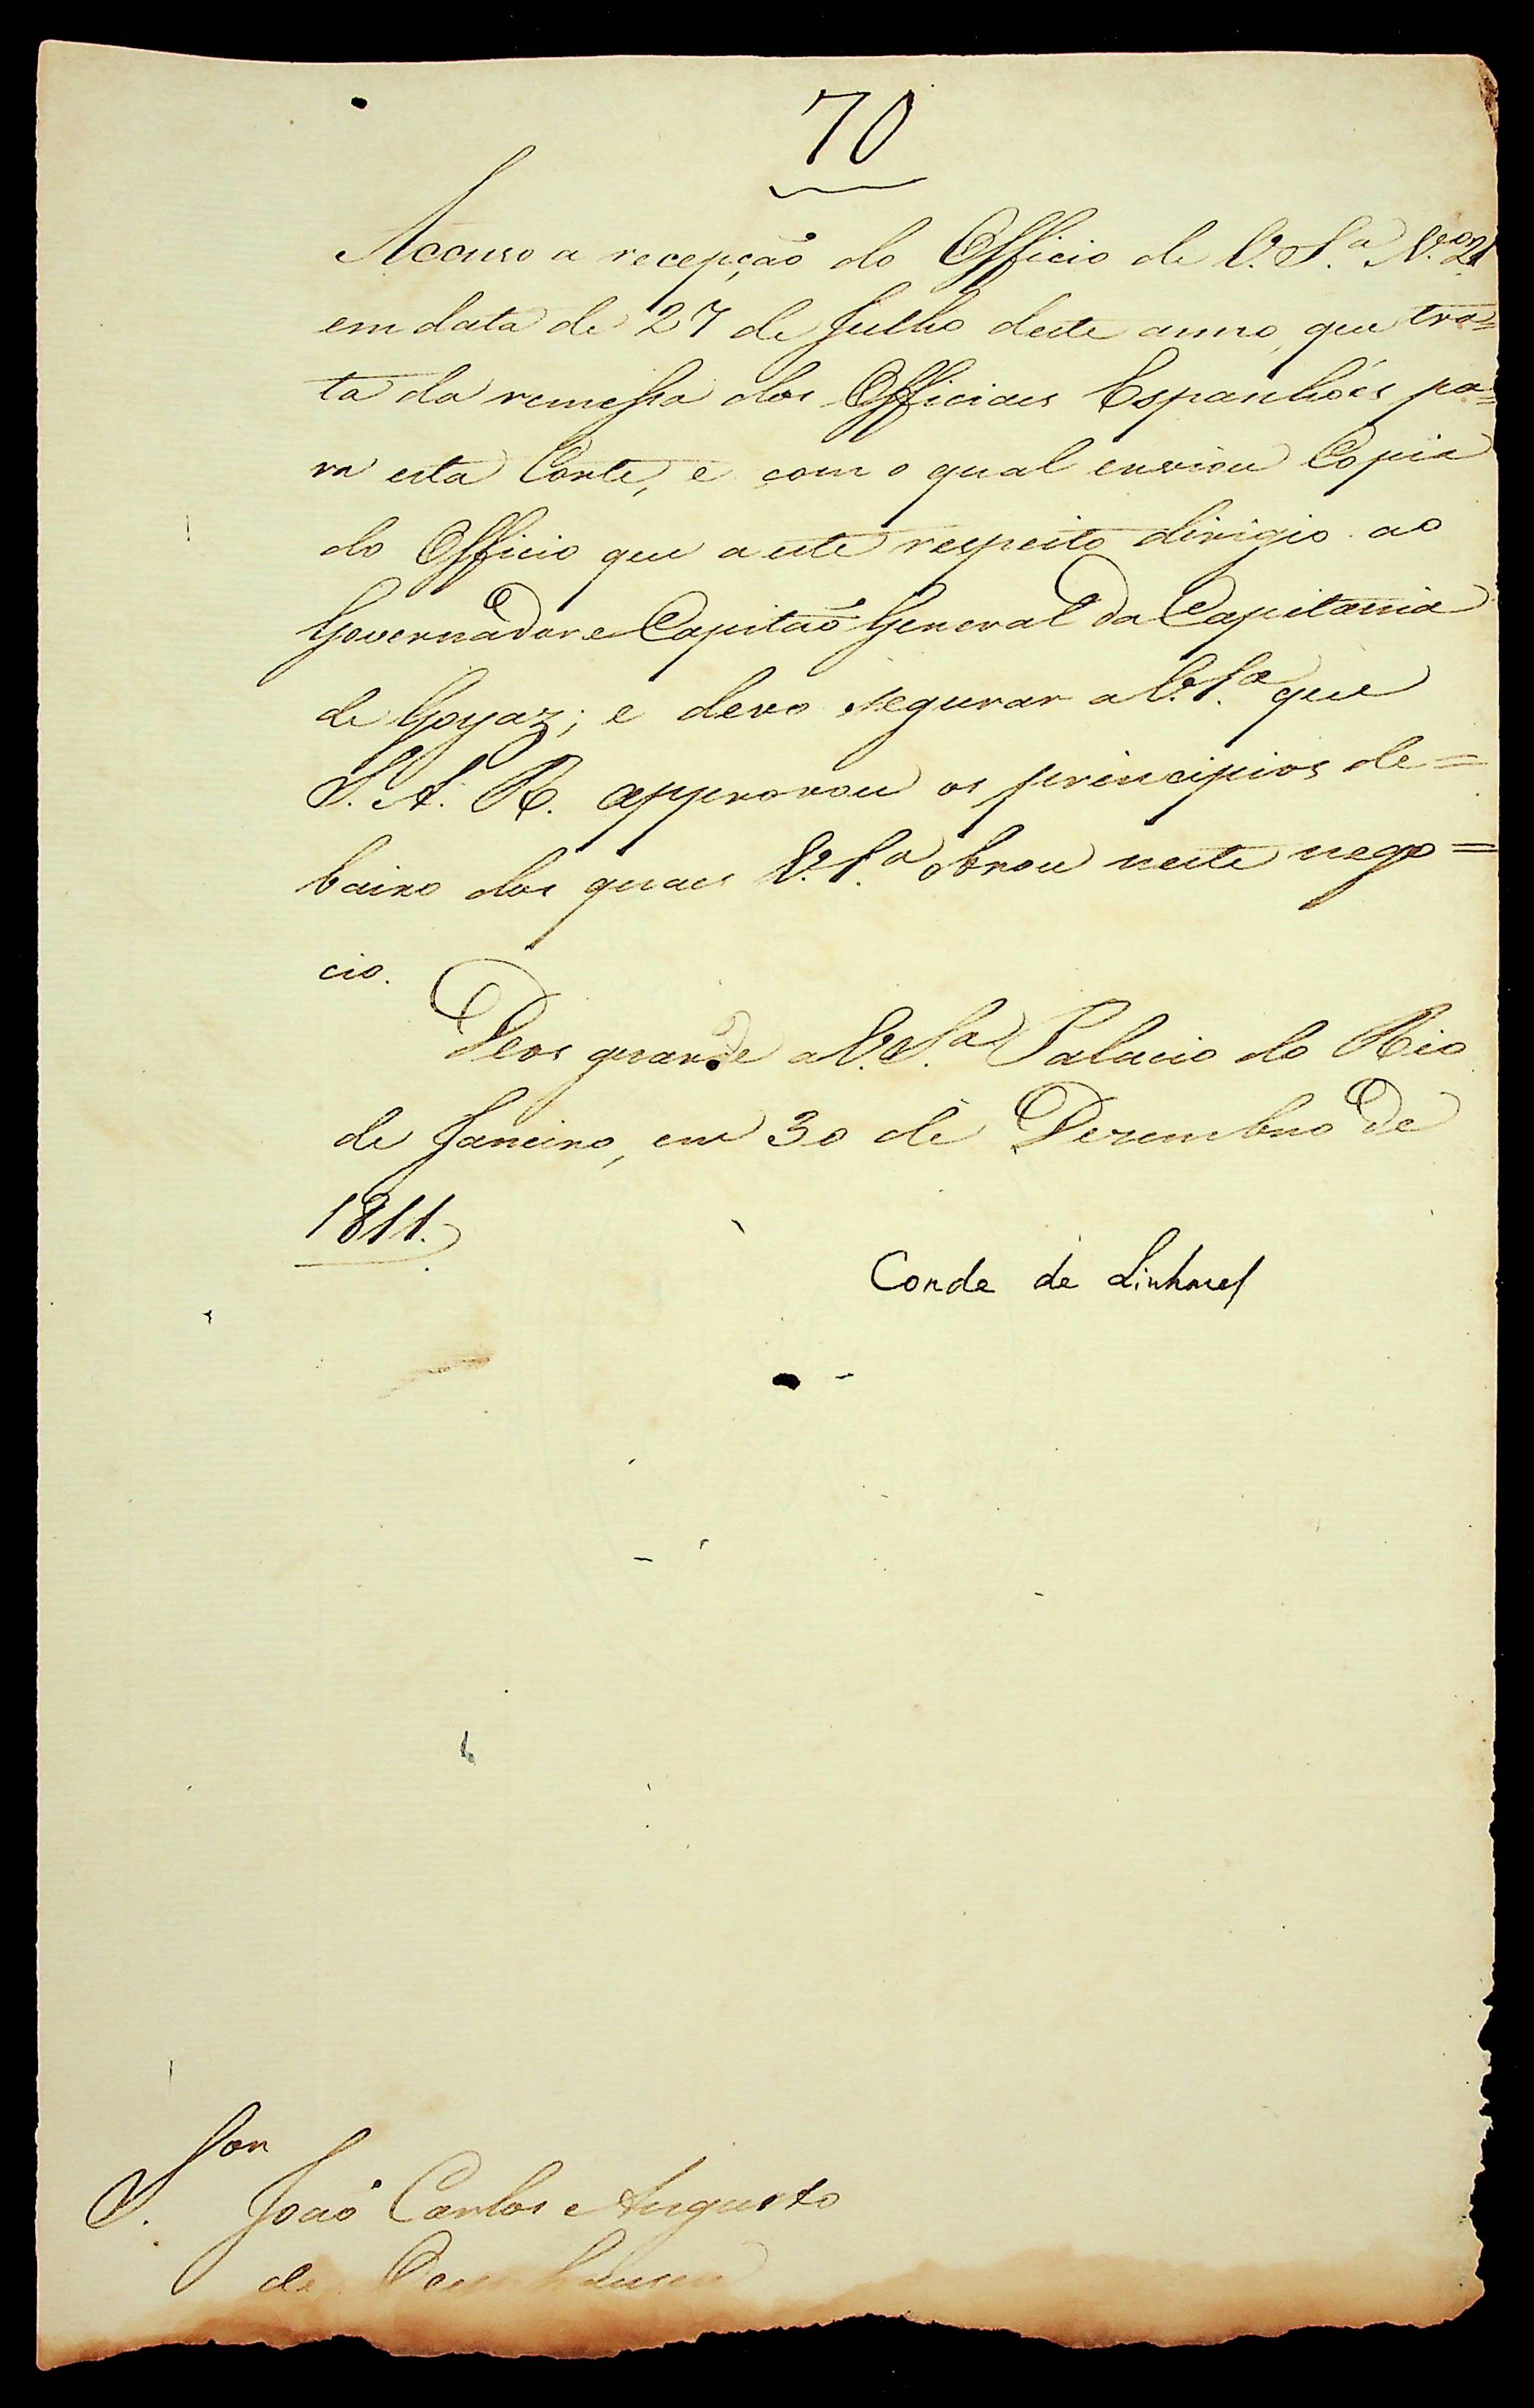 70
Accuso a recepção do Officio de V. S.ª N.º 21
em data de 27 de Julho deste anno, que tra=
ta da remessa dos Officiaes Espanhóes pa=
ra esta Corte, e com o qual enviou Copia
do Officio que a este respeito dirigio ao
Governador e Capitaõ General da Capitania
de Goyaz; e devo segurar a V. S.ª que
S. A. R. approvou os principios de=
baixo dos quaes V. S.ª obrou neste nego=
cio.
Deos guarde a V. S.ª Palacio do Rio
de Janeiro, em 30 de Dezembro de
1811.
Conde de Linhares
S.ʳ João Carlos Augusto
de Oeynhausen